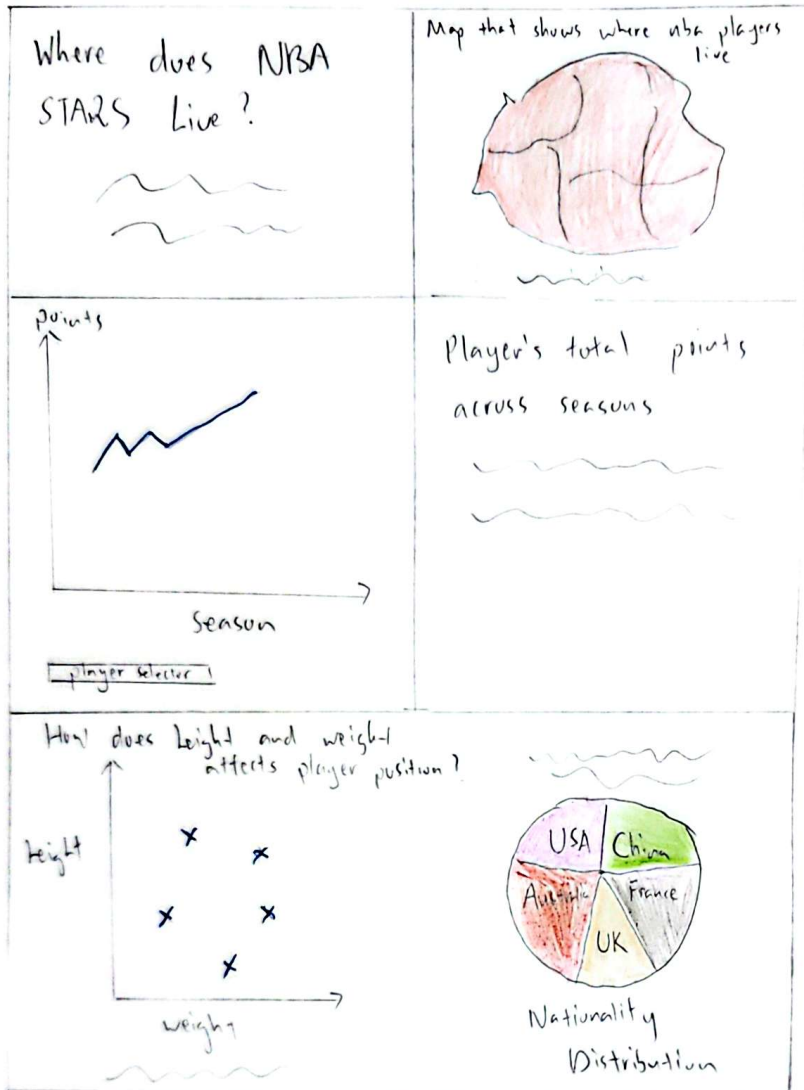 Where does NBA
STARS Live?
Map that shows where nba players
live
points
season
player selector
Player's total points
across seasons
How does height and weight
affects player position?
height
weight
USA
China
Australia
France
UK
Nationality
Distribution